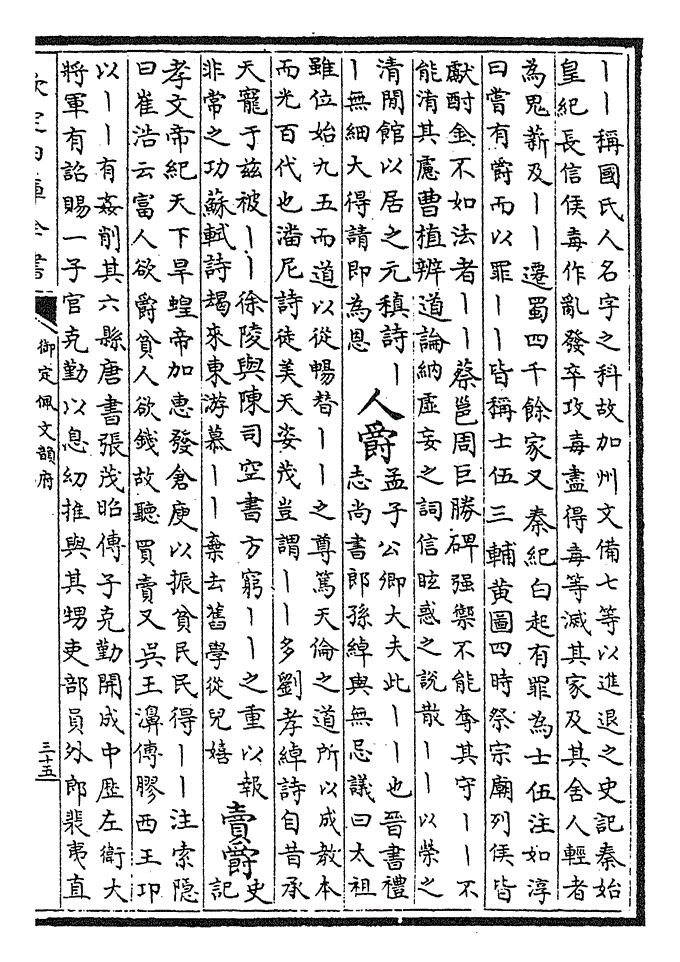 丨丨稱國氏人名字之科故加州文備七等以進退之史記秦始
皇紀長信侯毒作亂發卒攻毒盡得毒等滅其家及其舍人輕者
為鬼薪及丨丨遷蜀四千餘家又秦紀白起有罪為士伍注如淳
曰嘗有爵而以罪丨丨皆稱士伍三輔黄圖四時祭宗廟列侯皆
獻酎金不如法者丨丨蔡邕周巨勝碑强禦不能奪其守丨丨不
能淆其慮曹植辨道論納虛妄之詞信眩惑之說散丨丨以榮之
清閒館以居之元稹詩丨
丨無細大得請即為恩
人爵
孟子公卿大夫此丨丨也晉書禮
志尚書郎孫綽與無忌議曰太祖
雖位始九五而道以從暢替丨丨之尊篤天倫之道所以成教本
而光百代也潘尼詩徒美天姿茂豈謂丨丨多劉孝綽詩自昔承
天寵于兹被丨丨徐陵與陳司空書方窮丨丨之重以報
非常之功蘇軾詩朅來東游慕丨丨棄去舊學從兒嬉
賣爵
史
記
孝文帝紀天下旱蝗帝加惠發倉庾以振貧民民得丨丨注索隱
曰崔浩云富人欲爵貧人欲錢故聽買賣又吳王濞傳膠西王卬
以丨丨有姦削其六縣唐書張茂昭傳子克勤開成中歷左衛大
將軍有詔賜一子官克勤以息幼推與其甥吏部員外郎裴夷直
欽定四庫全書
御定佩文韻府
三十五